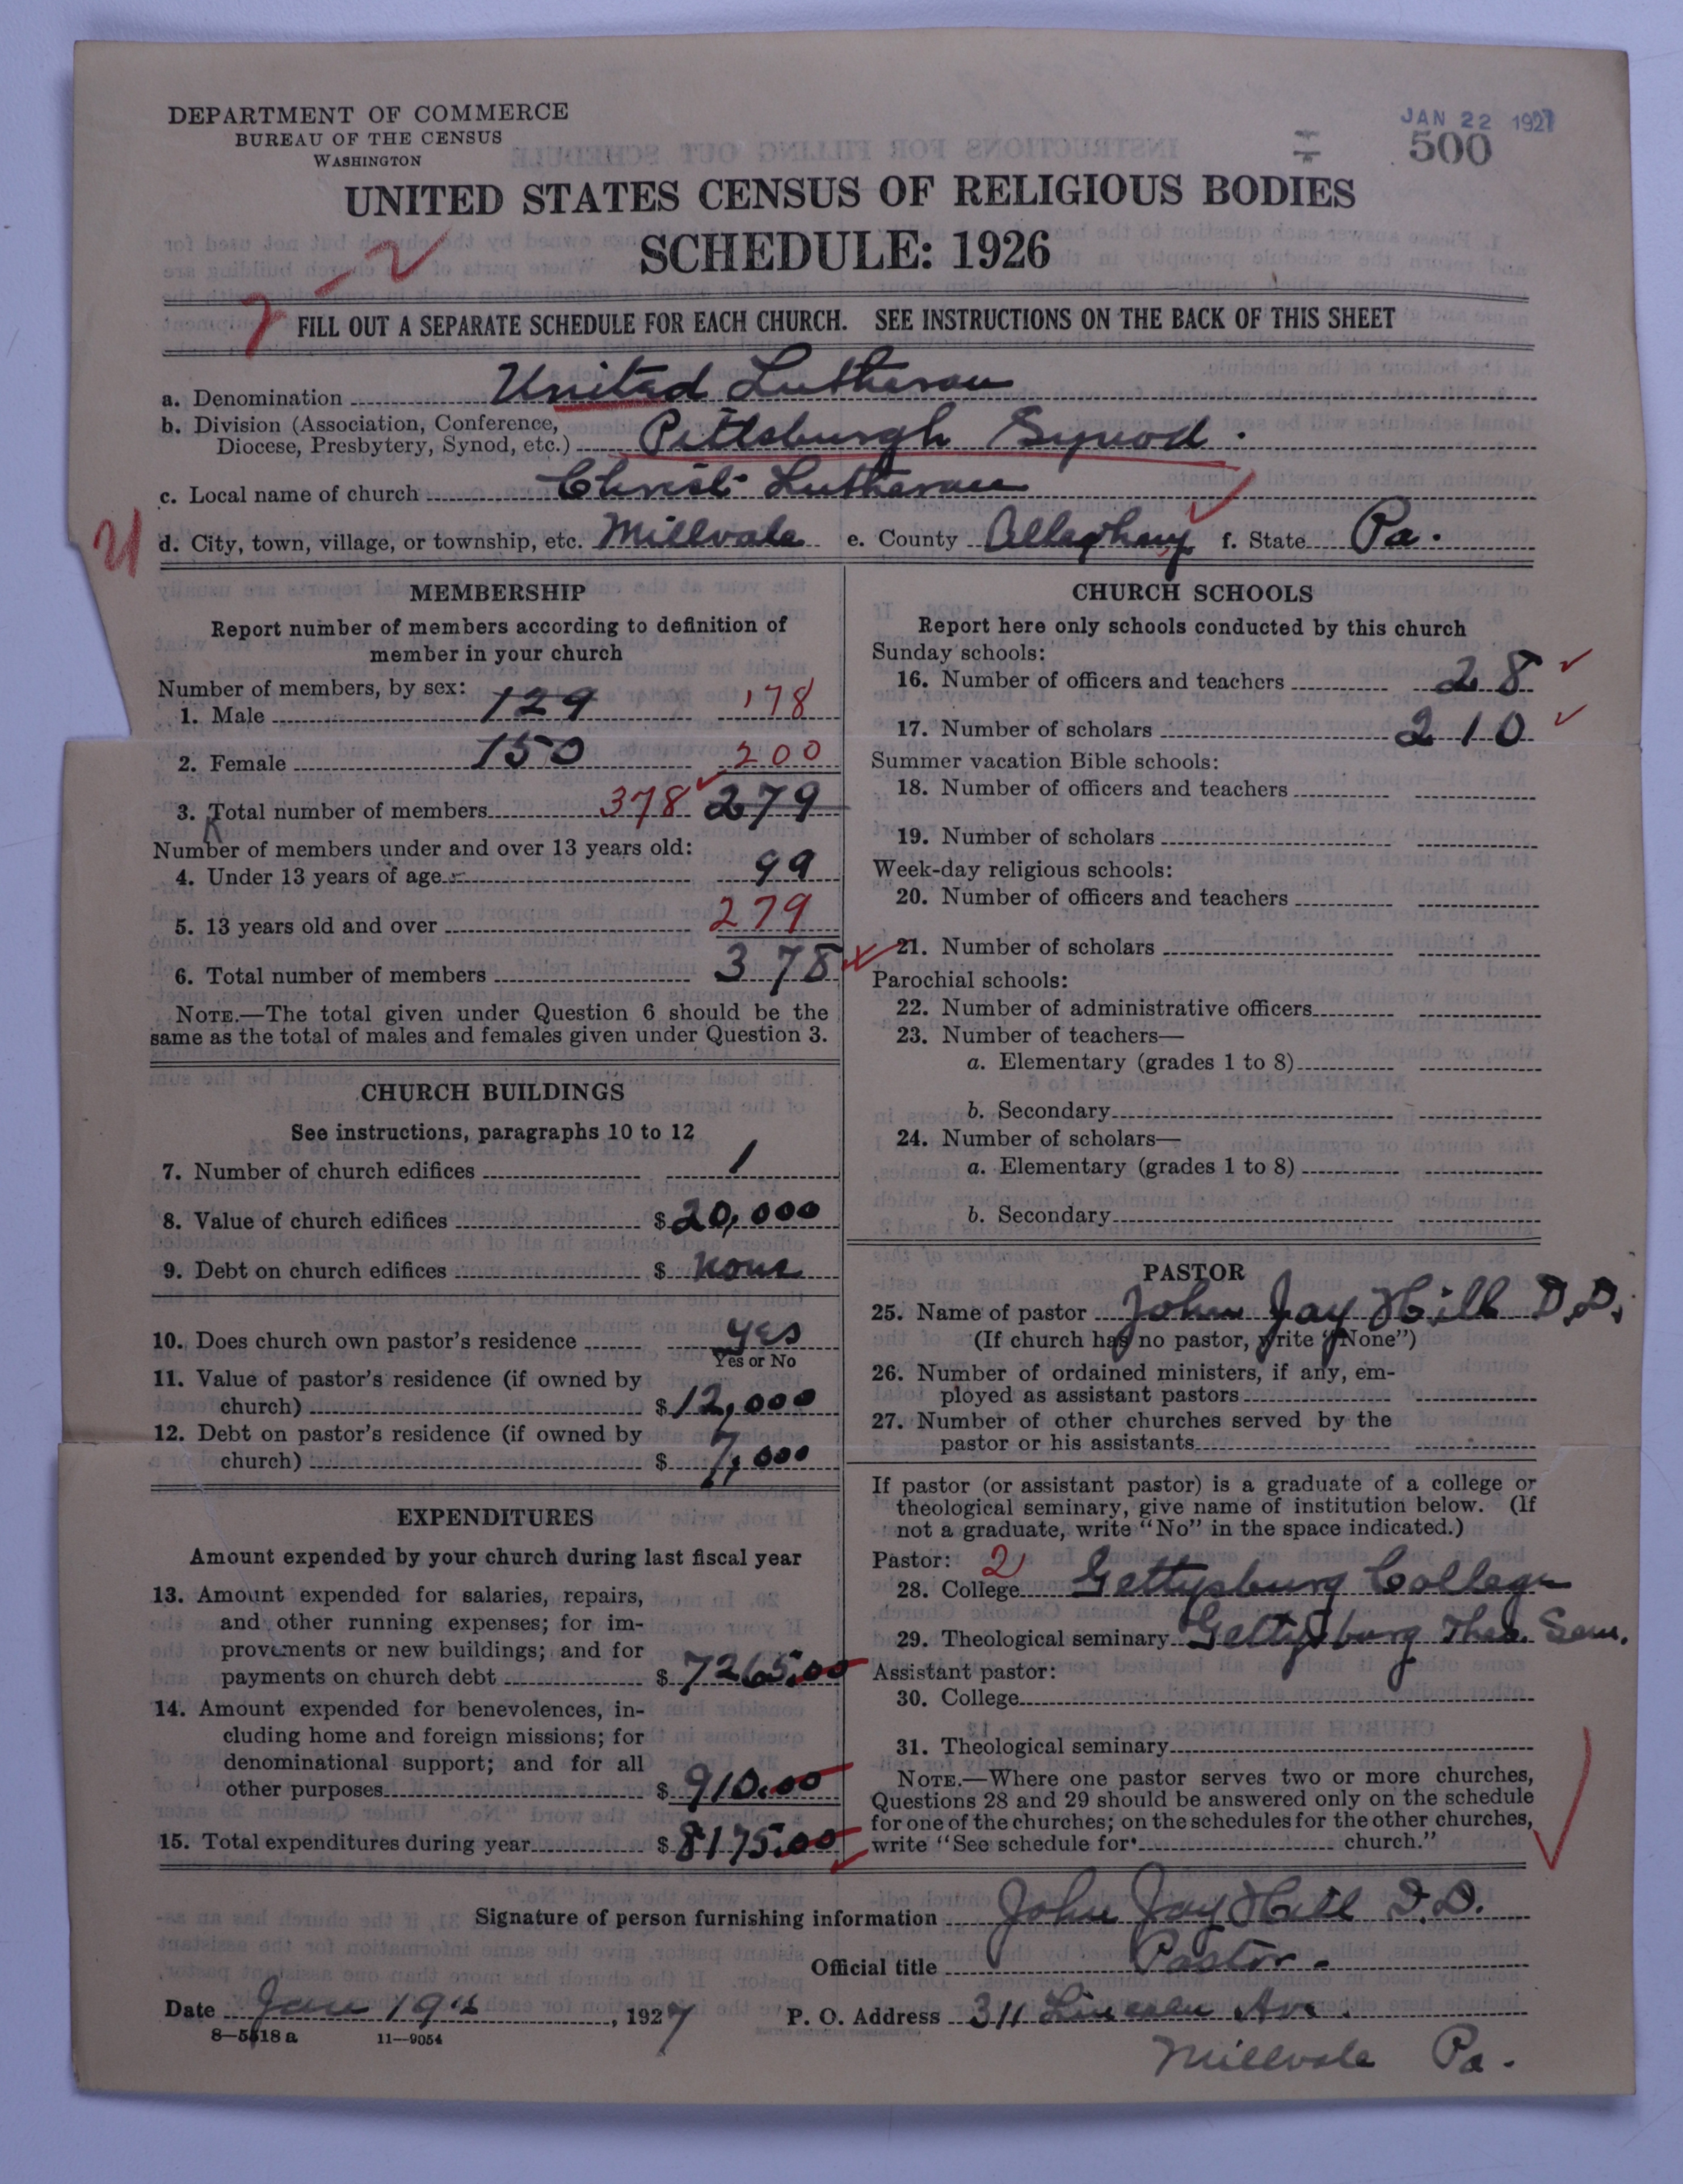 DEPARTMENT OF COMMERCE
BUREAU OF THE CENSUS
WASHINGTON
JAN 22 1927
500
UNITED STATES CENSUS OF RELIGIOUS BODIES
SCHEDULE: 1926
7-2
FILL OUT A SEPARATE SCHEDULE FOR EACH CHURCH. SEE INSTRUCTIONS ON THE BACK OF THIS SHEET
a. Denomination United Lutheran
b. Division (Association, Conference,
Diocese, Presbytery, Synod, etc.) Pittsburgh Synod.
c. Local name of church Christ Lutheran
d. City, town, village, or township, etc. Millvale e. County Allegheny f. State Pa.
MEMBERSHIP
Report number of members according to definition of
member in your church
Number of members, by sex:
1. Male 129 178
2. Female 150 200
3. Total number of members 378 279
Number of members under and over 13 years old:
4. Under 13 years of age 99
5. 13 years old and over 279
6. Total number of members 378
NOTE.—The total given under Question 6 should be the
same as the total of males and females given under Question 3.
CHURCH BUILDINGS
See instructions, paragraphs 10 to 12
7. Number of church edifices 1
8. Value of church edifices $20,000
9. Debt on church edifices $ None
10. Does church own pastor's residence yes
Yes or No
11. Value of pastor's residence (if owned by
church) $12,000
12. Debt on pastor's residence (if owned by
church) $ 7,000
EXPENDITURES
Amount expended by your church during last fiscal year
13. Amount expended for salaries, repairs,
and other running expenses; for im-
provements or new buildings; and for
payments on church debt $7265.00
14. Amount expended for benevolences, in-
cluding home and foreign missions; for
denominational support; and for all
other purposes $910.00
15. Total expenditures during year $8175.00
CHURCH SCHOOLS
Report here only schools conducted by this church
Sunday schools:
16. Number of officers and teachers 28
17. Number of scholars 210
Summer vacation Bible schools:
18. Number of officers and teachers
19. Number of scholars
Week-day religious schools:
20. Number of officers and teachers
21. Number of scholars
Parochial schools:
22. Number of administrative officers
23. Number of teachers—
a. Elementary (grades 1 to 8)
b. Secondary
24. Number of scholars—
a. Elementary (grades 1 to 8)
b. Secondary
PASTOR
25. Name of pastor John Jay Hill D.D.
(If church has no pastor, write "None")
26. Number of ordained ministers, if any, em-
ployed as assistant pastors
27. Number of other churches served by the
pastor or his assistants
If pastor (or assistant pastor) is a graduate of a college or
theological seminary, give name of institution below. (If
not a graduate, write "No" in the space indicated.)
Pastor: 2
28. College Gettysburg College
29. Theological seminary Gettysburg Theo. Sem.
Assistant pastor:
30. College
31. Theological seminary
NOTE.—Where one pastor serves two or more churches,
Questions 28 and 29 should be answered only on the schedule
for one of the churches; on the schedules for the other churches,
write "See schedule for church."
Signature of person furnishing information John Jay Hill D.D.
Official title Pastor.
Date Jan 19th, 1927 P. O. Address 311 Lincoln Av.
8—5518 a 11—9054
Millvale Pa.